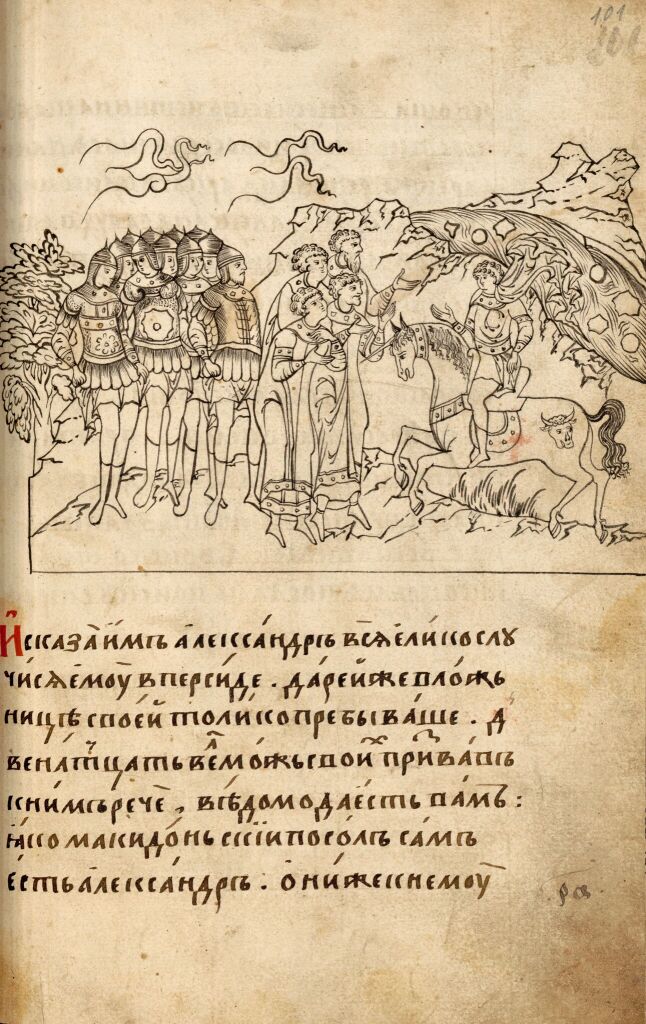 101
И҆сказа́ имъ алеѯа́ндръ всѧ̀ елико слу
чи́сѧ емоу̀ в персиде . да́рей же в ло́жь
ницѣ своей толико пребыва́ше . д
вена́тцать велмо́жъ свои́х призва́въ
к ни́мъ речѐ , вѣдомо да е́сть ва́мъ :
ꙗ҆ко макидо́ньскїи посо́лъ са́мъ
е҆́сть алеѯа́ндръ . ѻ҆ни́ же к немоу̀
ра